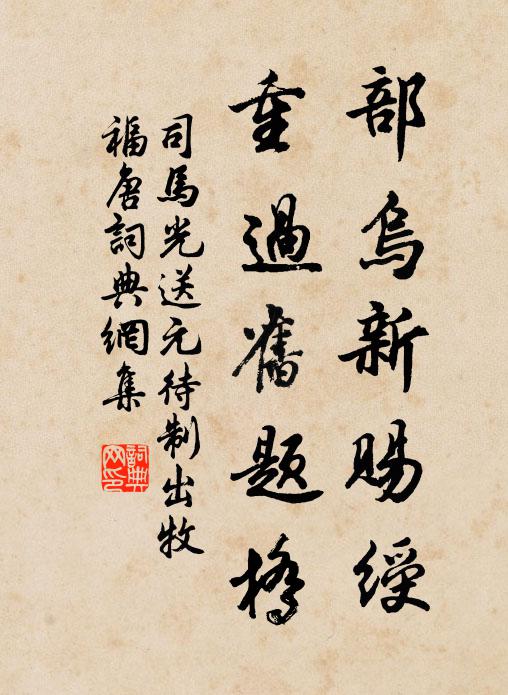 部烏新賜綬
重過舊題橋
司馬光送元待制出牧
福唐詞典網集
詞典网印